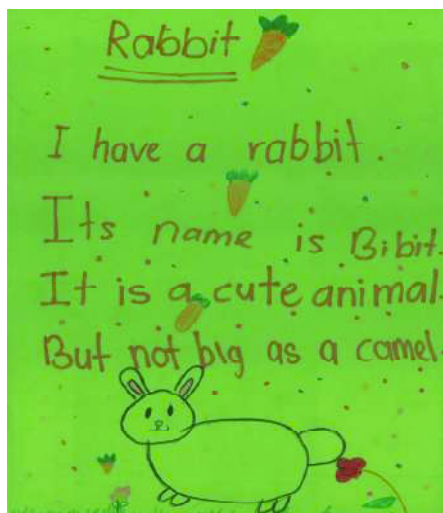 Rabbit
I have a rabbit.
Its name is Bibit.
It is a cute animal.
But not big as a camel.